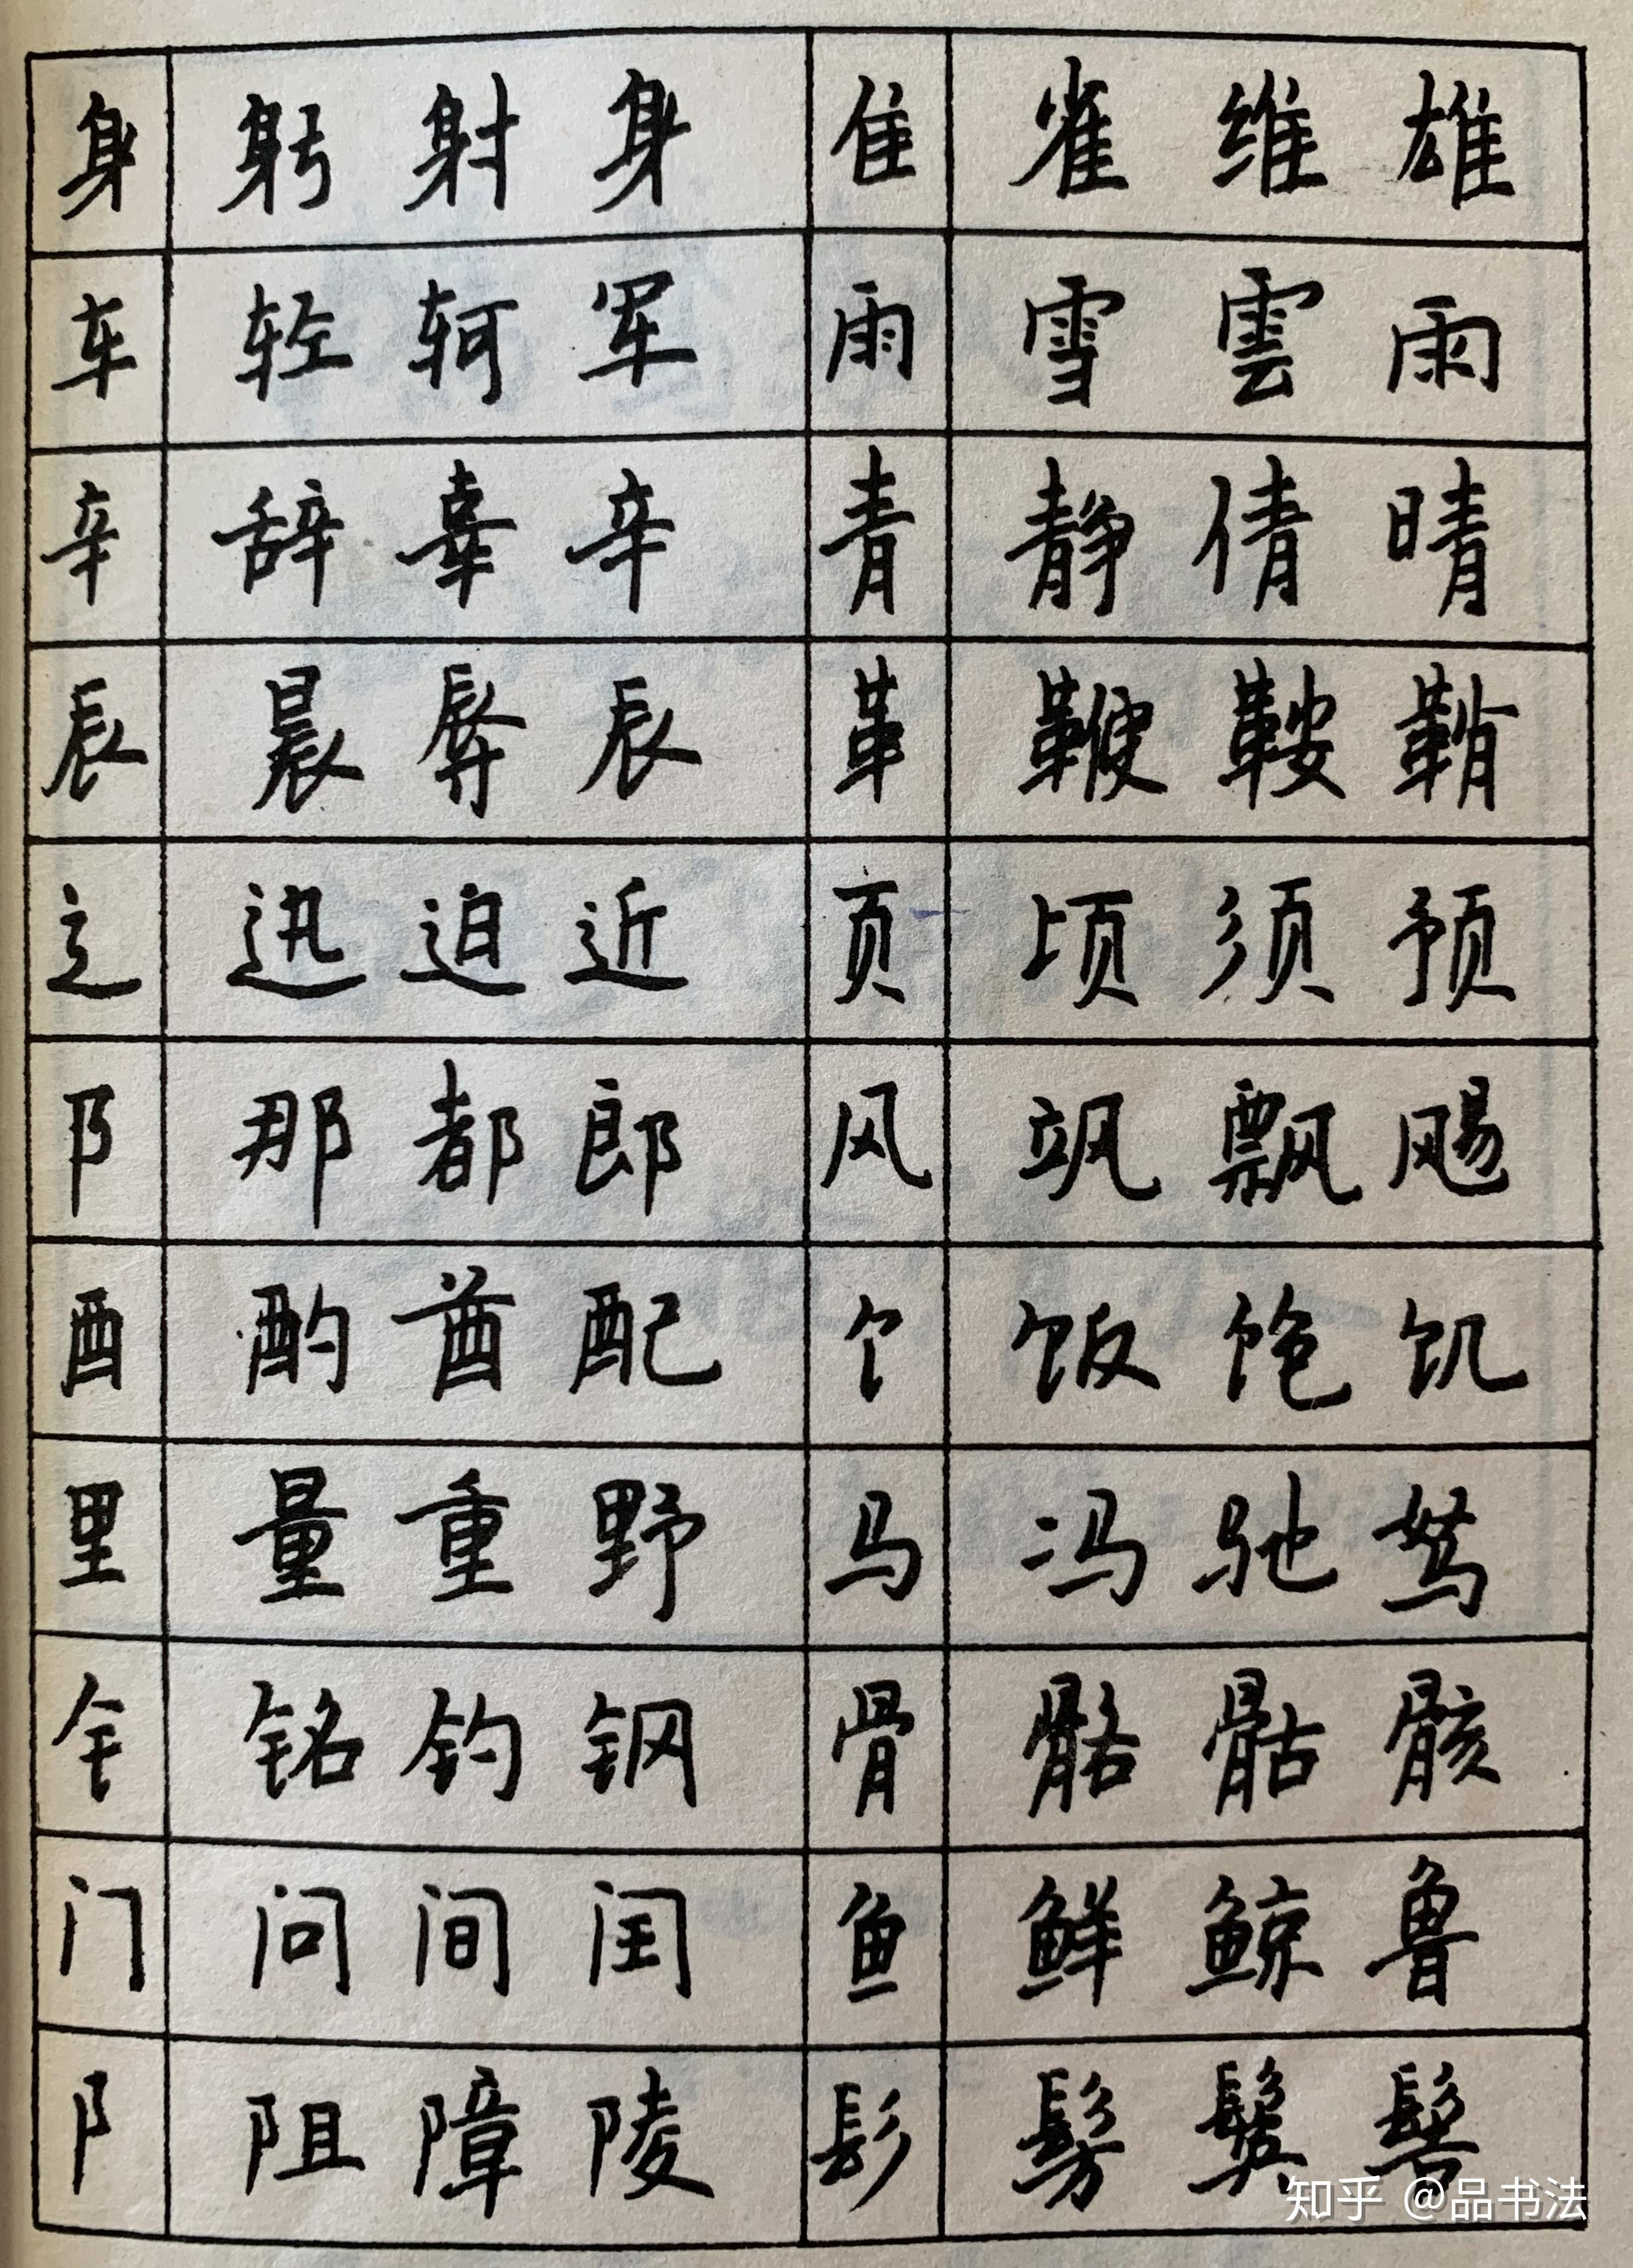 身 躬 射 身 隹 雀 维 雄
车 轻 轲 军 雨 雪 雲 雨
辛 辞 辜 辛 青 静 倩 晴
辰 晨 辱 辰 革 鞭 鞍 鞘
辶 迅 迫 近 页 顷 须 预
阝 那 都 郎 风 飒 飘 飏
酉 酌 酋 配 饣 饭 饱 饥
里 量 重 野 马 冯 驰 驽
钅 铭 钓 钢 骨 骼 骷 骸
门 问 间 闰 鱼 鲜 鲸 鲁
阝 阻 障 陵 髟 髣 鬓 髻
知乎 @品书法